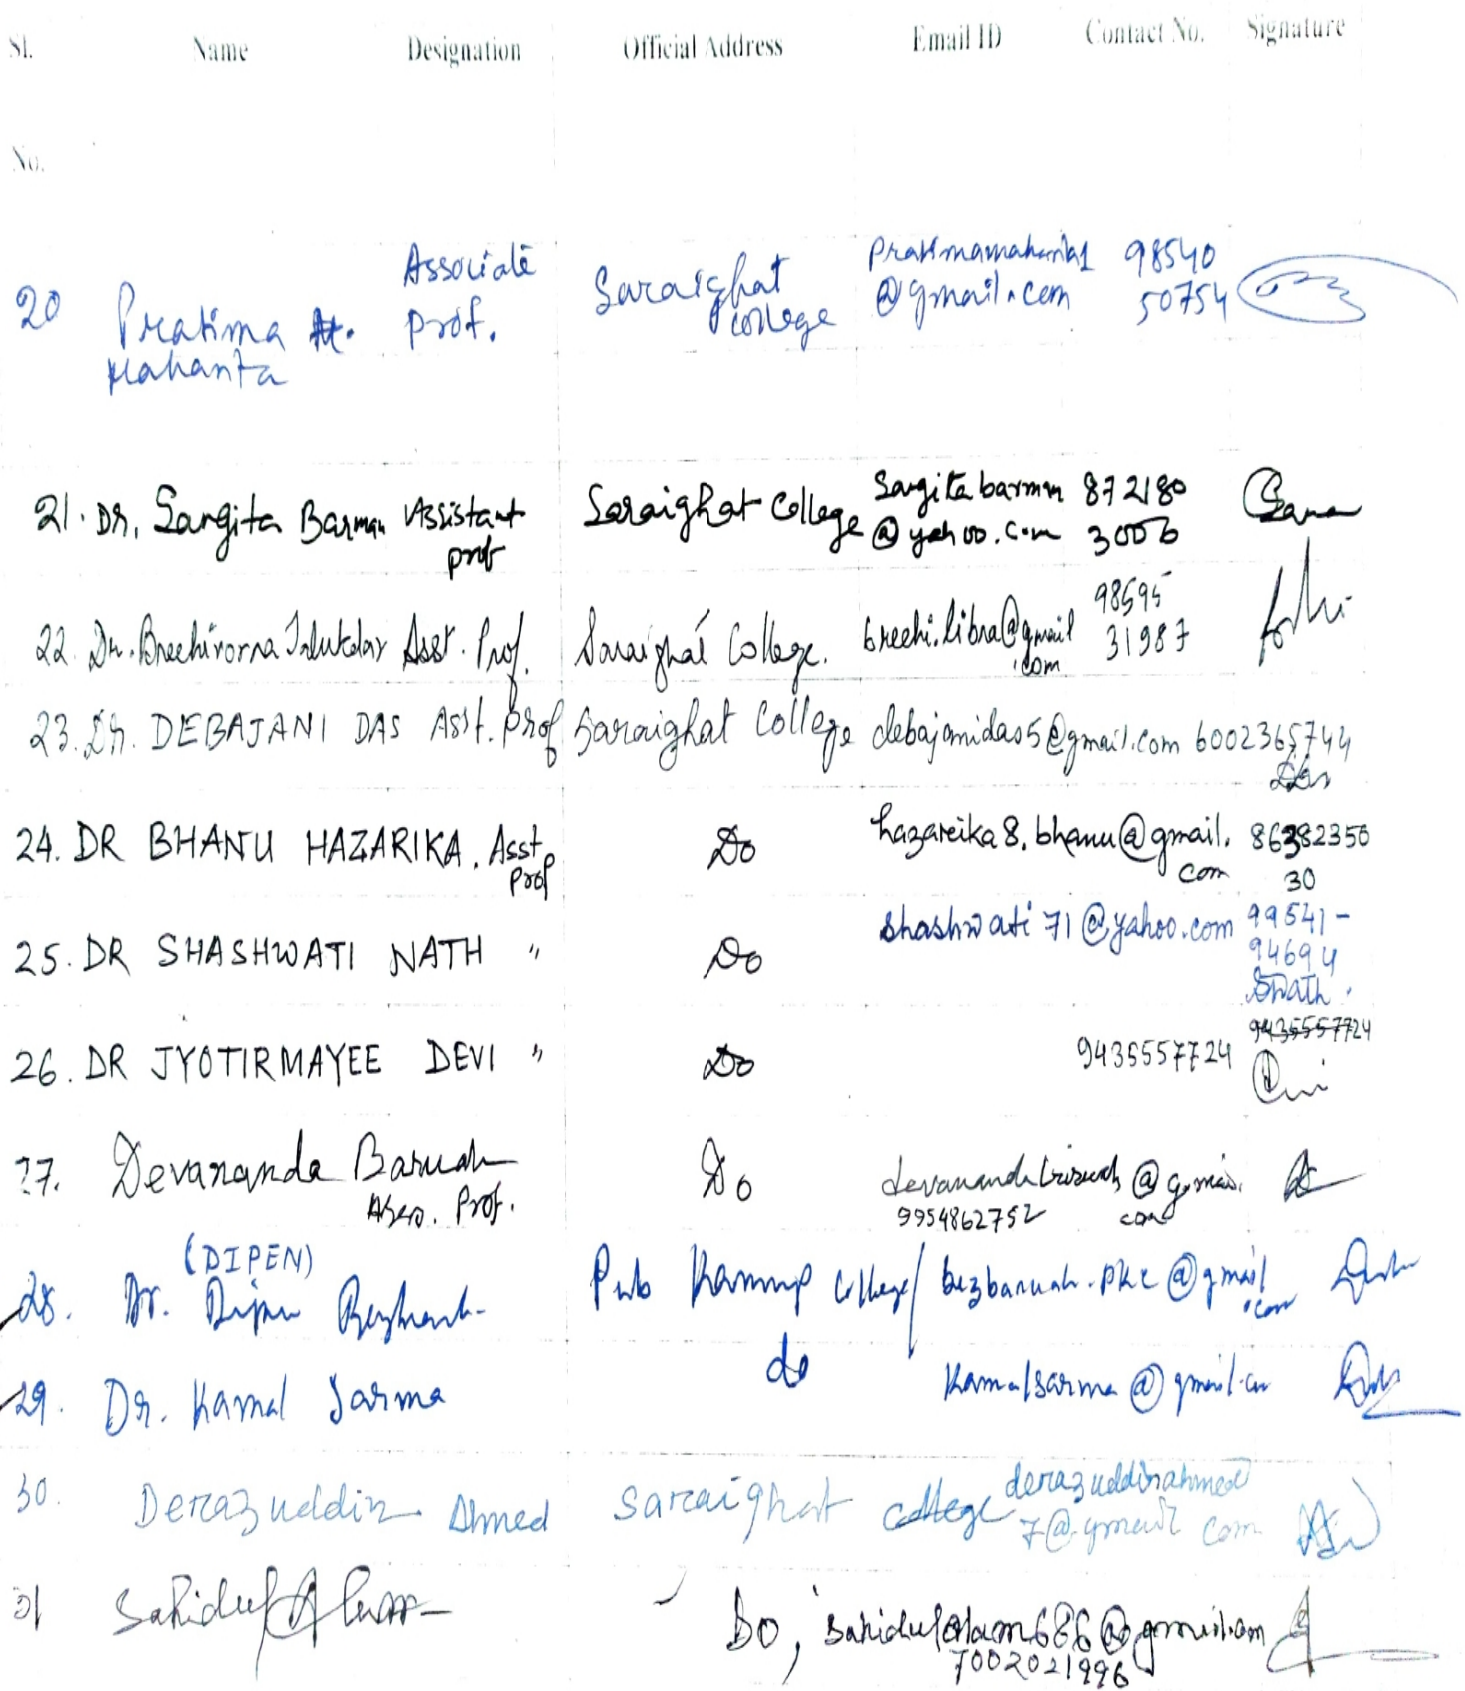 Sl. Name Designation Official Address Email ID Contact No. Signature
No.
20 Pratima Mahanta Associate Prof. Saraighat College Pratimamahanta1@gmail.com 98540 50754
21. Dr, Sangita Barman Assistant prof Saraighat College Sangitabarman@yahoo.com 872180 3006
22. Dr. Brechivorna Talukdar Asst. Prof. Saraighat College. brechi.libra@gmail.com 98595 31987
23. Dr. DEBAJANI DAS Asst. Prof Saraighat College debajanidas5@gmail.com 6002365744
Das
24. DR BHANU HAZARIKA. Asst Prof Do hazareika8.bhanu@gmail.com 86382350 30
25. DR SHASHWATI NATH " Do shashwati71@yahoo.com 99541-94694
SNath.
26. DR JYOTIRMAYEE DEVI " Do 9435557724 9435557724
27. Devananda Baruah Asso. Prof. Do @gmail.com
9954862752
(DIPEN)
28. Dr. Dipen Pub Kamrup College/ bezbaruah.pkc@gmail.com
29. Dr. Kamal Sarma do Kamalsarma@gmail.com
30. Derazuddin Ahmed Saraighat College derazuddinahmed7@gmail com
31 Sahidul Alam Do, sahidulalam686@gmail.com
7002021996